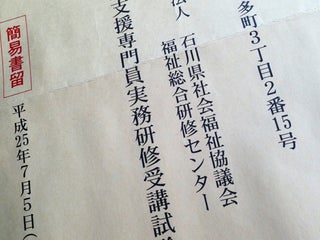 多町3丁目2番15号
法人 石川県社会福祉協議会
福祉総合研修センター
支援専門員実務研修受講試
簡易書留
平成25年7月5日(